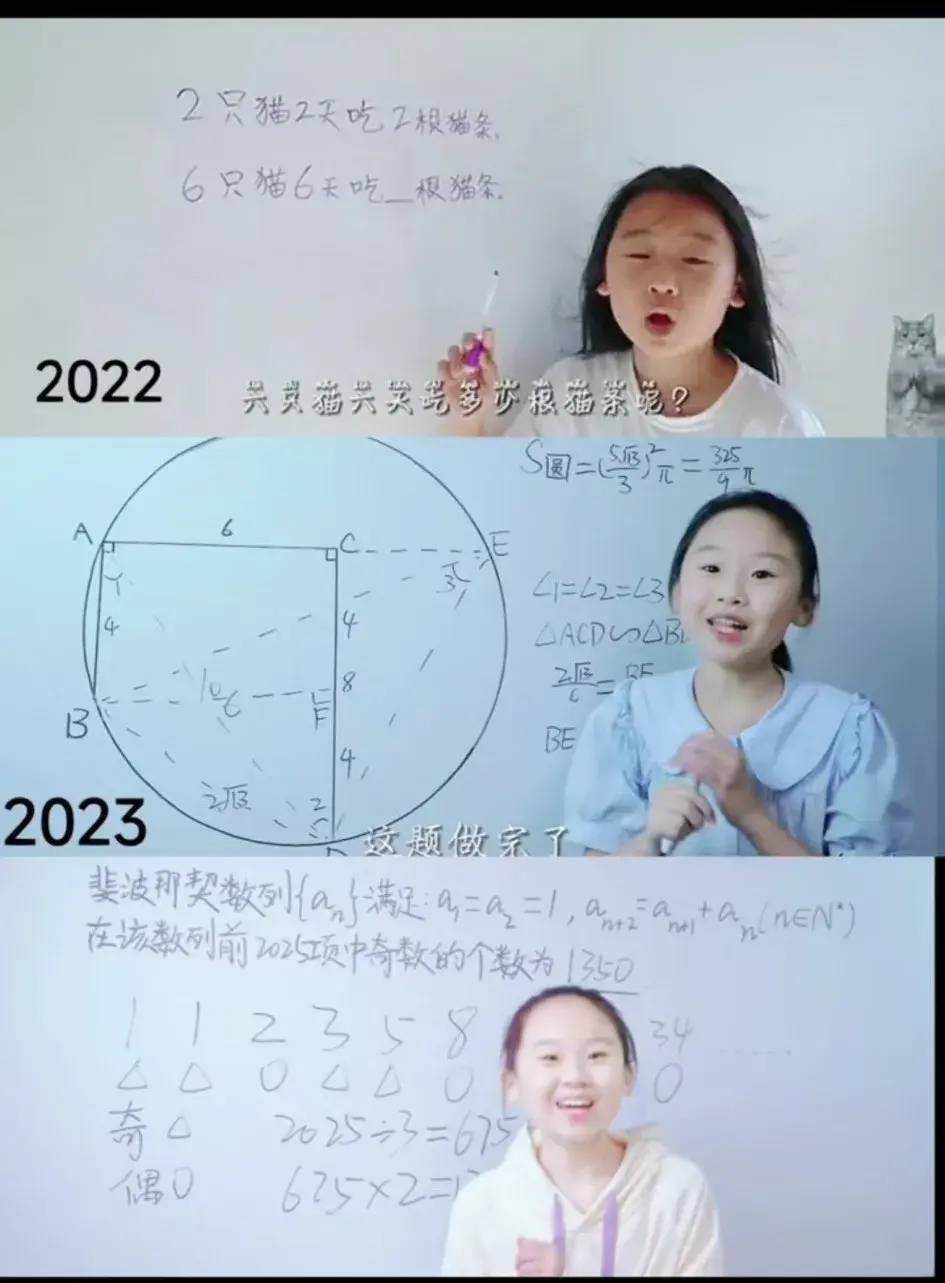 2只猫2天吃2根猫条.
6只猫6天吃__根猫条.
2022
六只猫六天吃多少根猫条呢?
S圆=(5√13/3)²π=325/9π
A
6
C
E
1
3
∠1=∠2=∠3
4
4
△ACD∽△B
8
B
F
BE
4
2√13
2
2023
这题做完了
斐波那契数列{aₙ}满足:a₁=a₂=1,aₙ₊₂=aₙ₊₁+aₙ(n∈N*)
在该数列前2025项中奇数的个数为1350
1 1 2 3 5 8 34 ......
△ △ O △ △ O O
奇△ 2025÷3=675
偶O 675×2=1